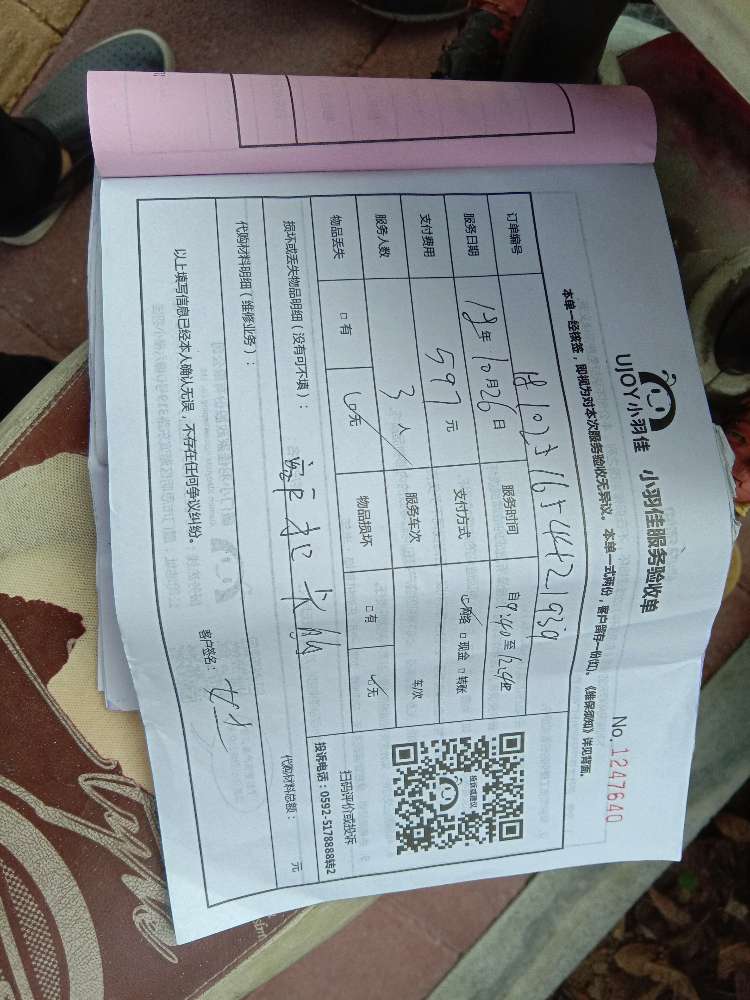 UJOY小羽佳 小羽佳服务验收单
No.1247640
本单一经核签，即视为对本次服务验收无异议。本单一式两份，客户留存一份(如)。《维保须知》详见背面。
订单编号 10231654421939
服务日期 18年10月26日 服务时间 自9:40至12:40
支付费用 597元 支付方式 ☑网络 □现金 □转账
服务人数 3人 服务车次 车次
物品丢失 □有 ☑无 物品损坏 □有 ☑无
投诉或建议
扫码评价或投诉
投诉电话：0592-5178888转2
损坏或丢失物品明细（没有可不填）：
代购材料明细（维修业务）：
代购材料总额： 元
以上填写信息已经本人确认无误，不存在任何争议纠纷。 客户签名：